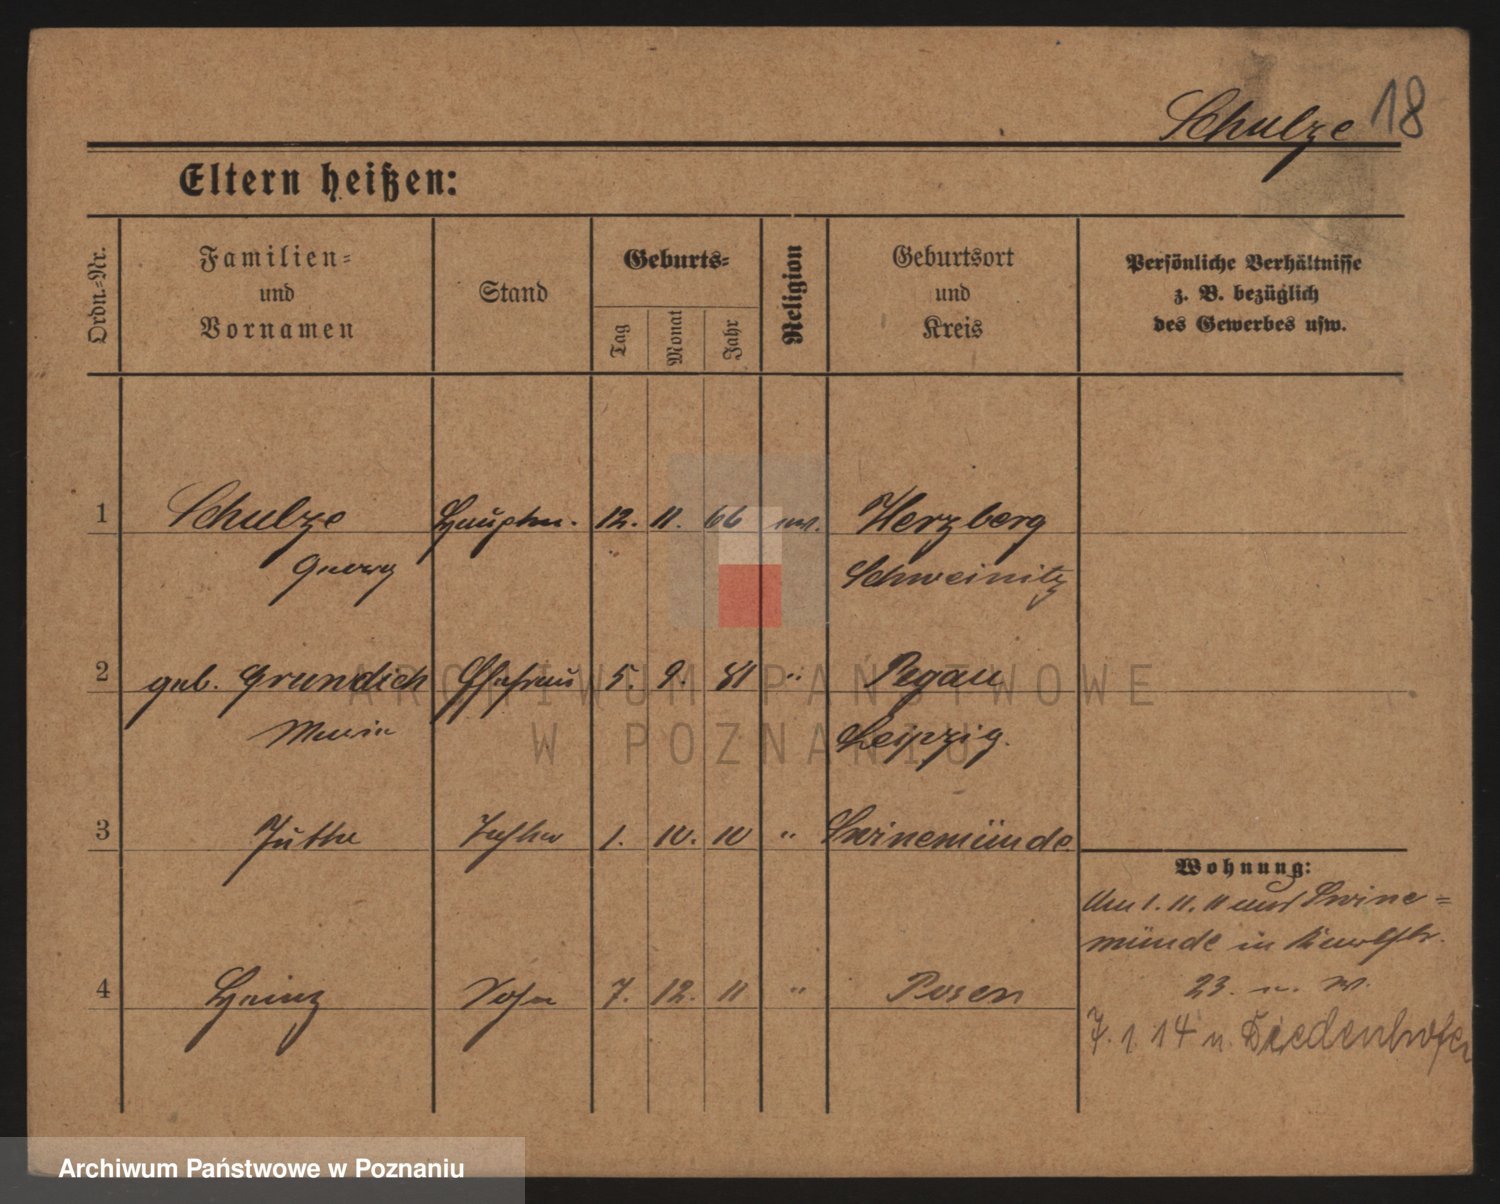 Schulze 18
Eltern heißen:
Ordn.-Nr.
Familien-
und
Vornamen
Stand
Geburts-
Tag
Monat
Jahr
Religion
Geburtsort
und
Kreis
Persönliche Verhältnisse
z. B. bezüglich
des Gewerbes usw.
1 Schulze Hauptm. 12. 11. 66 ev. Herzberg
Georg Schweinitz
2 geb. Grundich Ehefrau 5. 9. 81 " Pegau
Marie Leipzig.
3 Jutta Tochter 1. 10. 10 " Swinemünde
Wohnung:
Am 1. 11. 11 aus Swine-
münde in
4 Heinz Sohn 7. 12. 11 " Posen
23. u. w.
7. 1 14 n. Diedenhofen
ARCHIWUM PAŃSTWOWE
W POZNANIU
Archiwum Państwowe w Poznaniu